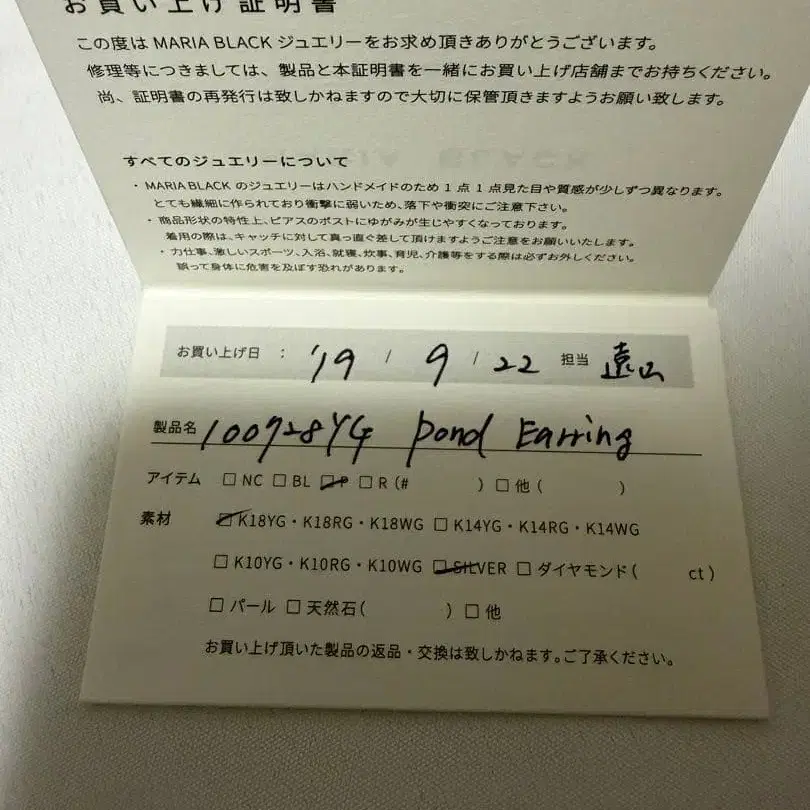 お買い上げ証明書
この度は MARIA BLACK ジュエリーをお求め頂きありがとうございます。
修理等につきましては、製品と本証明書を一緒にお買い上げ店舗までお持ちください。
尚、証明書の再発行は致しかねますので大切に保管頂きますようお願い致します。
すべてのジュエリーについて
・MARIA BLACK のジュエリーはハンドメイドのため 1 点 1 点見た目や質感が少しずつ異なります。
とても繊細に作られており衝撃に弱いため、落下や衝突にご注意下さい。
・商品形状の特性上、ピアスのポストにゆがみが生じやすくなっております。
着用の際は、キャッチに対して真っ直ぐ差して頂けますようご注意をお願いいたします。
・力仕事、激しいスポーツ、入浴、就寝、炊事、育児、介護等をする際は必ずお外しください。
誤って身体に危害を及ぼす恐れがあります。
お買い上げ日 : '19 / 9 / 22 担当 遠山
製品名 100728YG Pond Earring
アイテム □ NC □ BL □ P □ R (# ) □ 他 ( )
素材 □ K18YG・K18RG・K18WG □ K14YG・K14RG・K14WG
□ K10YG・K10RG・K10WG □ SILVER □ ダイヤモンド ( ct )
□ パール □ 天然石 ( ) □ 他
お買い上げ頂いた製品の返品・交換は致しかねます。ご了承ください。